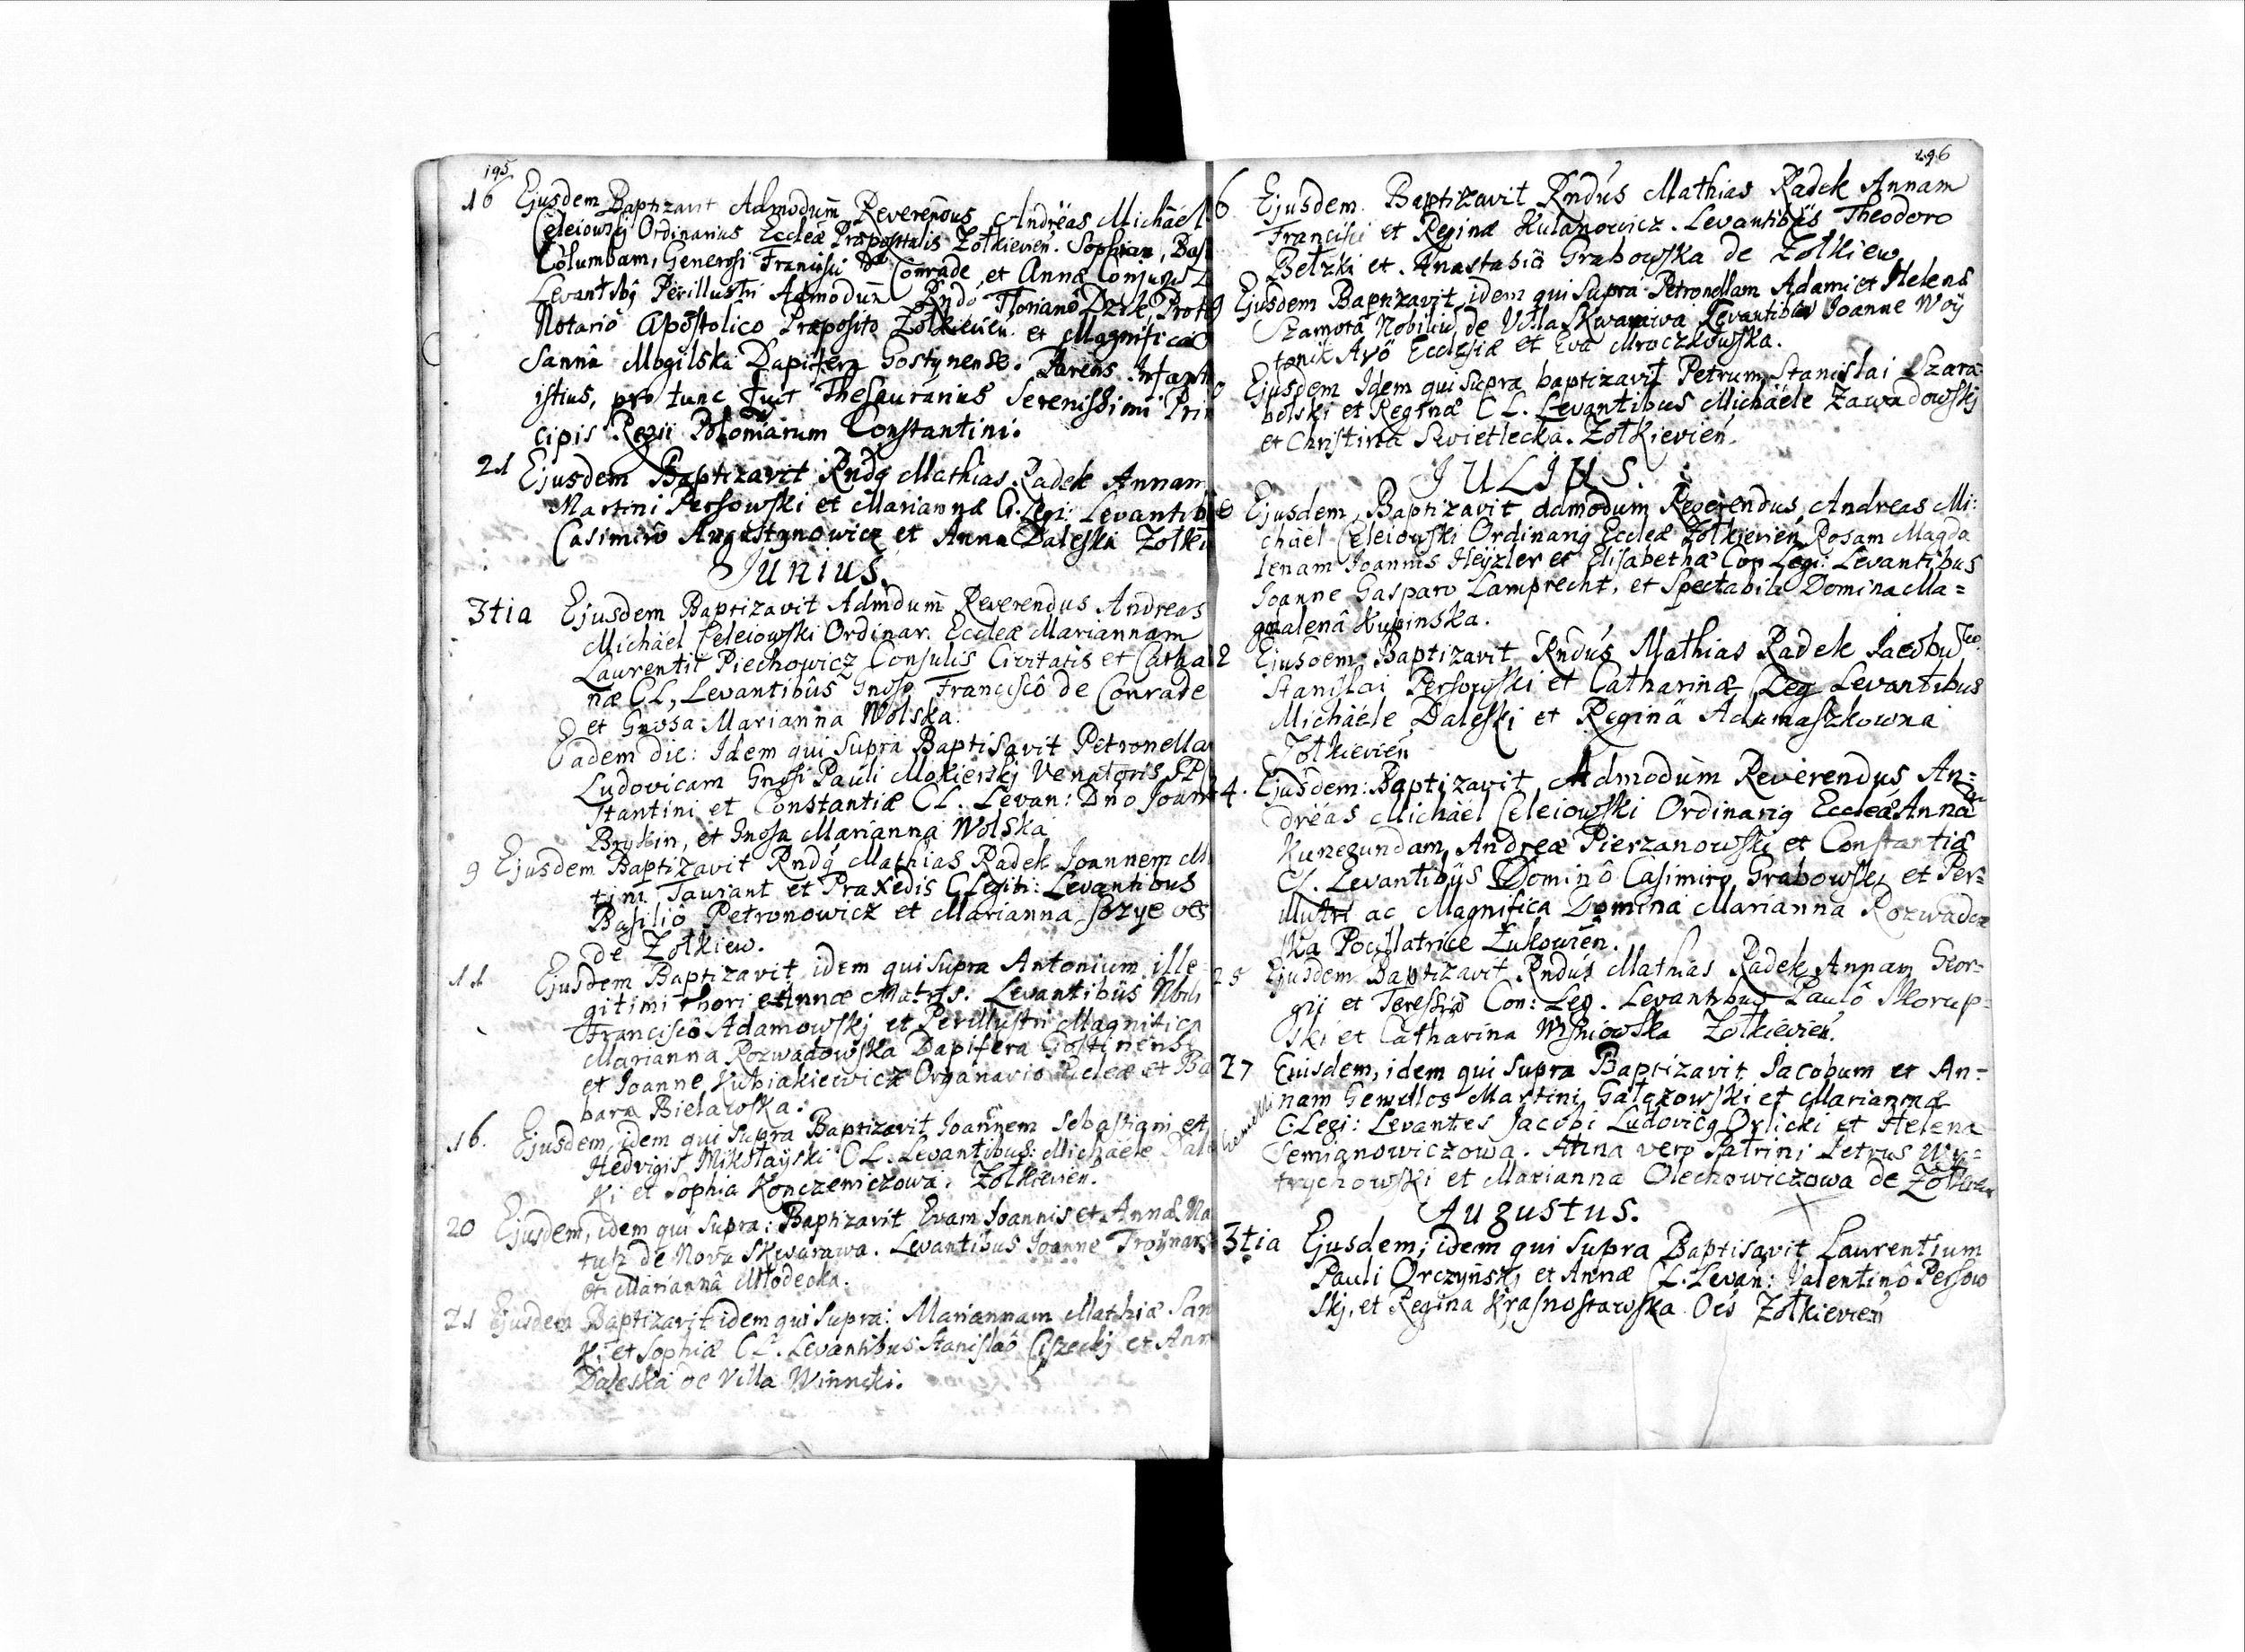 195
16 Ejusdem Baptizavit Admodum Reverendus Andreas Michäel
Celeiowskj Ordinarius Eccleæ Præpositalis Zołkievien. Sophiam, Bas
Columbam, Generosi Francisci de Conrade et Annæ Conjugis
Levantibq Perillustri Admodum Rndo Floriano Dzik, Proto
Notario Apostolico Præposito Zołkievien. et Magnifica
sanna Mogilska Dapifera Gostynense. Parens Infant
istius, pro tunc fuit Thesaurarius Serenissimi Prin
cipis Regii Poloniarum Constantini.
21 Ejusdem Baptizavit Rndq Mathias Radek Annam
Martini Persowski et Mariannæ C. Legi: Levantib
Casimirô Augustynowicz et Anna Daleska Zołki
Junius.
3tia Ejusdem Baptizavit Admdum Reverendus Andreas
Michäel Celeiowski Ordinar. Eccleæ Mariannam
Laurentii Piechowicz Consulis Civitatis et Catha
næ CL, Levantibûs Gnoso Franciscô de Conrade
et Gnosa Marianna Wolska.
Eadem die: Idem qui Supra Baptisavit Petronella
Ludovicam Gnosi Pauli Mokierskj Venatoris SP
stantini et Constantiæ CL. Levan: Dno Joan
Brykin, et Gnosa Marianna Wolska
9 Ejusdem Baptizavit Rndq Mathias Radek Joannem M
tini Tauriant et Praxedis C Legiti: Levantibus
Basiliô Petronowicz et Marianna
de Zołkiew.
11 Ejusdem Baptizavit idem qui Supra Antonium ille
gitimi thori et Annæ Matris. Levantibûs Nbili
Franciscô Adamowskj et Perillustri Magnifica
Marianna Rozwadowska Dapifera Gostinensi
et Joanne Kubiakiewicz Organario Eccleæ et Ba
bara Bielawska.
16. Ejusdem, idem qui Supra Baptizavit Joannem Sebastiani et
Hedvigis Mikołayski CL. Levantibus: Michäele Dale
ki et Sophia Konczewiczowa. Zołkievien.
20 Ejusdem, idem qui Supra: Baptizavit Evam Joannis et Annæ Na
tus de Nova Skwarawa. Levantibus Joanne Troynars
et Mariannâ Młodecka.
21 Ejusdem Baptizavit idem qui Supra: Mariannam Mathiæ San
k. et Sophiæ CL. Levantibus Stanislaô Ciszeckj et Ann
Daleska de Villa Winniki.
196
6 Ejusdem. Baptizavit Rndus Mathias Radek Annam
Francisci et Reginæ Kulanowicz. Levantibus Theodoro
Betzki et Anastasiä Grabowska de Zołkiew
9 Ejusdem Baptizavit, idem qui Supra Petronellam Adami et Helenæ
Szamota Nobiliu de Villa Skwarawa Levantibus Joanne Woÿ
tonik Avö Ecclesiæ et Eva Mroczkowska.
Ejusdem Idem qui Supra baptizavit Petrum Stanislai Szara
bolski et Reginæ CL. Levantibus Michäele Zawadowskj
et Christina Swietlecka. Zołkievien.
JULIUS.
Ejusdem, Baptizavit Admodum Reverendus Andreas Mi:
chäel Celeiowski Ordinariq Eccleæ Zołkievien Rosam Magda
lenam Joannis Heÿzler et Elisabethæ Con Legi: Levantibus
Joanne Gasparo Lamprecht, et Spectabili Domina Ma=
gdalenâ Kupinska.
12 Ejusdem: Baptizavit Rndus Mathias Radek Jacobu
Stanislai Persowski et Catharinæ C Leg Levantibus
Michäele Daleski et Reginä Adamaszkowna
Zołkievien
24. Ejusdem: Baptizavit Admodum Reverendus An=
dréas Michäel Celeiowski Ordinariq Eccleæ Anna
Kunegundam, Andreæ Pierzanowski et Constantiæ
CL. Levantibûs Dominô Casimiro Grabowski et Per=
illustri ac Magnifica Domina Marianna Rozwadow
ska Pocillatrice Łukowien.
25 Ejusdem Baptizavit Rndus Mathias Radek Annam Geor=
gii et Teressiæ Con: Leg. Levantibus Paulô Morup=
ski et Catharina Wisniowska Zołkievien.
27 Ejusdem, idem qui Supra Baptizavit Jacobum et An=
nam Gemellos Martini Gałęzowski et Mariannæ
Gemelli
C Legi: Levantes Jacobi Ludovicq Orlicki et Helena
Semianowiczowa. Anna vero Patrini Petrus Wy=
trychowski et Marianna Olechowiczowa de Zołkiew
Augustus.
3tia Ejusdem; idem qui Supra Baptisavit Laurentium
Pauli Orczyński et Annæ CL. Levan: Valentinô Persow
skj, et Regina Krasnostawska Oes Zołkievien